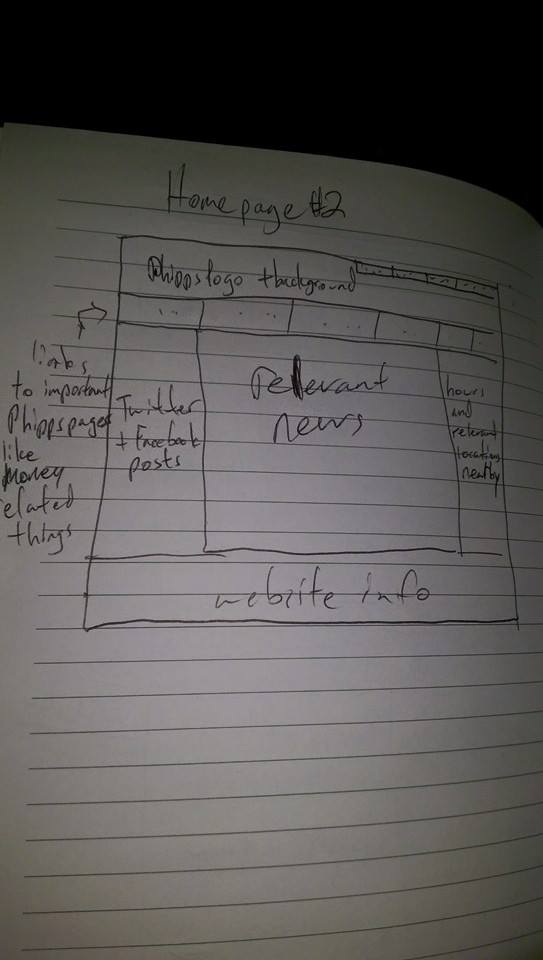 Homepage #2
Phipps logo + background
links
to important
Phipps pages
like
money
related
things
Twitter
+ Facebook
posts
relevant
news
hours
and
relevant
locations
nearby
website info